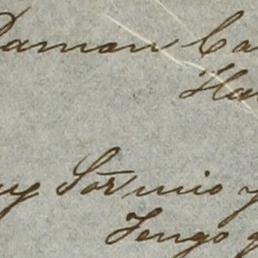 Daman Ca
Ha
uy Sor mio y
Tengo g